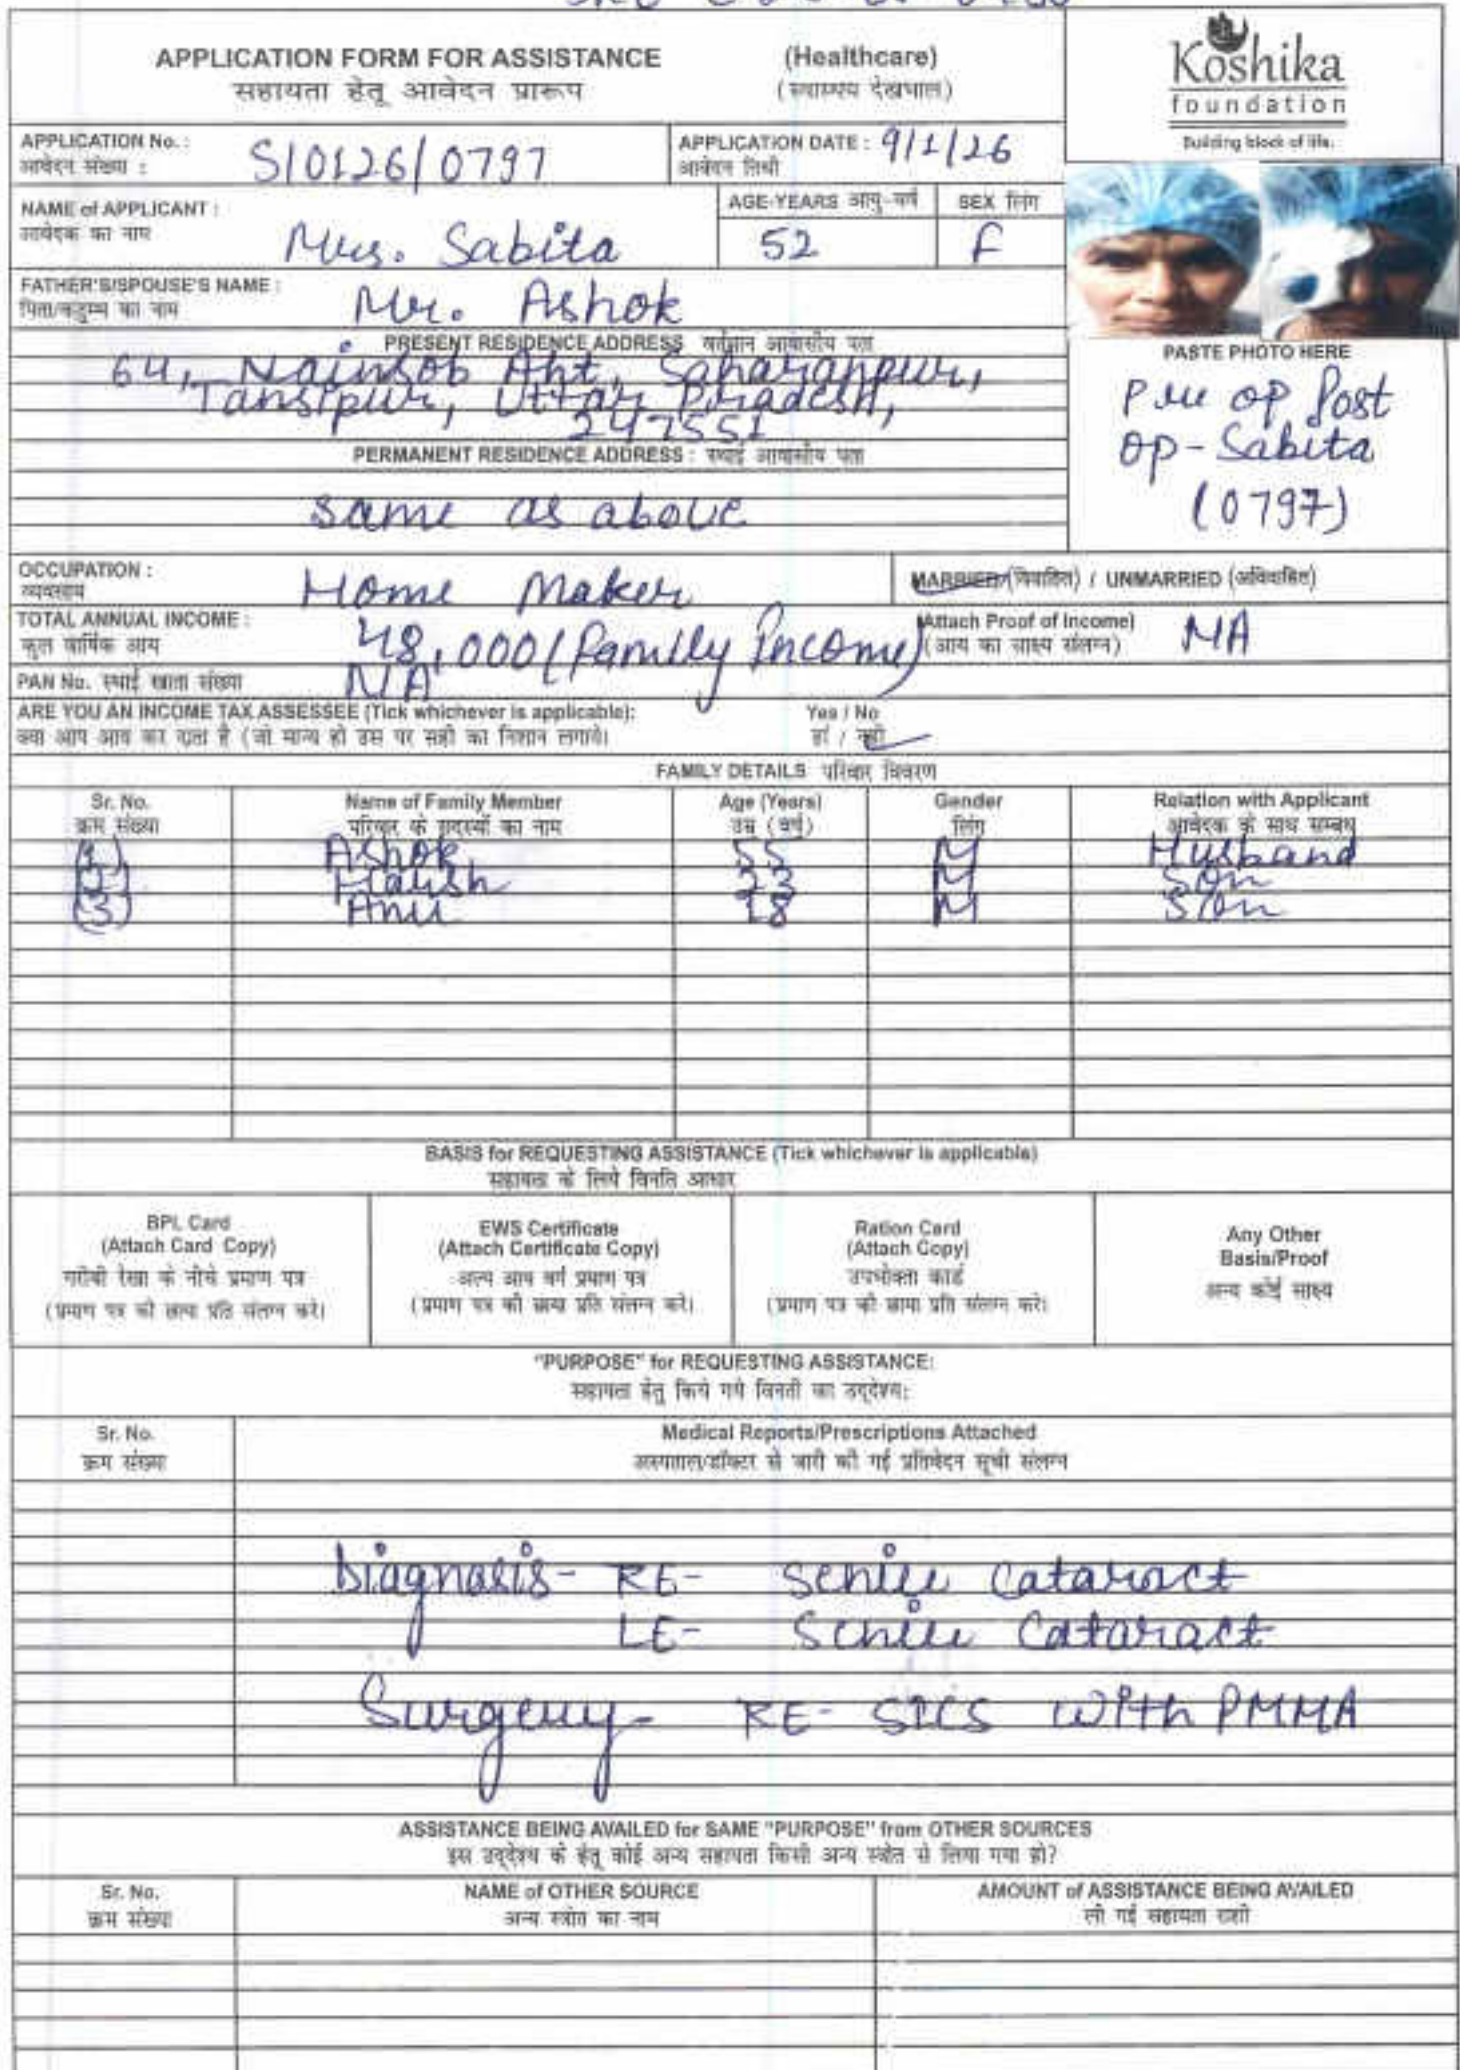 APPLICATION FORM FOR ASSISTANCE (Healthcare)
सहायता हेतू आवेदन प्रारूप (स्वास्थ्य देखभाल)
Koshika
foundation
Building block of life.
APPLICATION No.: S/0126/0797 APPLICATION DATE: 9/1/26
आवेदन संख्या : आवेदन तिथी
NAME of APPLICANT : Mrs. Sabita AGE-YEARS आयु-वर्ष 52 SEX लिंग F
आवेदक का नाम
FATHER'S/SPOUSE'S NAME : Mr. Ashok
पिता/कटुम्ब का नाम
PRESENT RESIDENCE ADDRESS वर्तमान आवासीय पता
64, Nainsob Aht, Saharanpur,
Tansipur, Uttar Pradesh,
247551
PERMANENT RESIDENCE ADDRESS : स्थाई आवासीय पता
Same as above
PASTE PHOTO HERE
Pre op Post
op-Sabita
(0797)
OCCUPATION : Home Maker MARRIED (विवाहित) / UNMARRIED (अविवाहित)
व्यवसाय
TOTAL ANNUAL INCOME : 48,000 (Family Income) (Attach Proof of Income) NA
कुल वार्षिक आय (आय का साक्ष्य संलग्न)
PAN No. स्थाई खाता संख्या NA
ARE YOU AN INCOME TAX ASSESSEE (Tick whichever is applicable): Yes / No
क्या आप आय कर दाता है (जो मान्य हो उस पर सही का निशान लगाये। हां / नही
FAMILY DETAILS परिवार विवरण
Sr. No. Name of Family Member Age (Years) Gender Relation with Applicant
क्रम संख्या परिवार के सदस्यों का नाम उम्र (वर्ष) लिंग आवेदक के साथ सम्बध
(1) Ashok 55 M Husband
(2) Harish 23 M Son
(3) Anu 18 M Son
BASIS for REQUESTING ASSISTANCE (Tick whichever is applicable)
सहायता के लिये विनति आधार
BPL Card
(Attach Card Copy)
गरीबी रेखा के नीचे प्रमाण पत्र
(प्रमाण पत्र की छाया प्रति संलग्न करे।
EWS Certificate
(Attach Certificate Copy)
अल्प आय वर्ग प्रमाण पत्र
(प्रमाण पत्र की छाया प्रति संलग्न करे।
Ration Card
(Attach Copy)
उपभोक्ता कार्ड
(प्रमाण पत्र की छाया प्रति संलग्न करे।
Any Other
Basis/Proof
अन्य कोई साक्ष्य
"PURPOSE" for REQUESTING ASSISTANCE:
सहायता हेतु किये गये विनती का उद्देश्य:
Sr. No. Medical Reports/Prescriptions Attached
क्रम संख्या अस्पताल/डॉक्टर से जारी की गई प्रतिवेदन सूची संलग्न
Diagnosis- RE- Senile Cataract
LE- Senile Cataract
Surgery- RE- SICS with PMMA
ASSISTANCE BEING AVAILED for SAME "PURPOSE" from OTHER SOURCES
इस उद्देश्य के हेतू कोई अन्य सहायता किसी अन्य स्त्रोत से लिया गया हो?
Sr. No. NAME of OTHER SOURCE AMOUNT of ASSISTANCE BEING AVAILED
क्रम संख्या अन्य स्त्रोत का नाम ली गई सहायता राशी